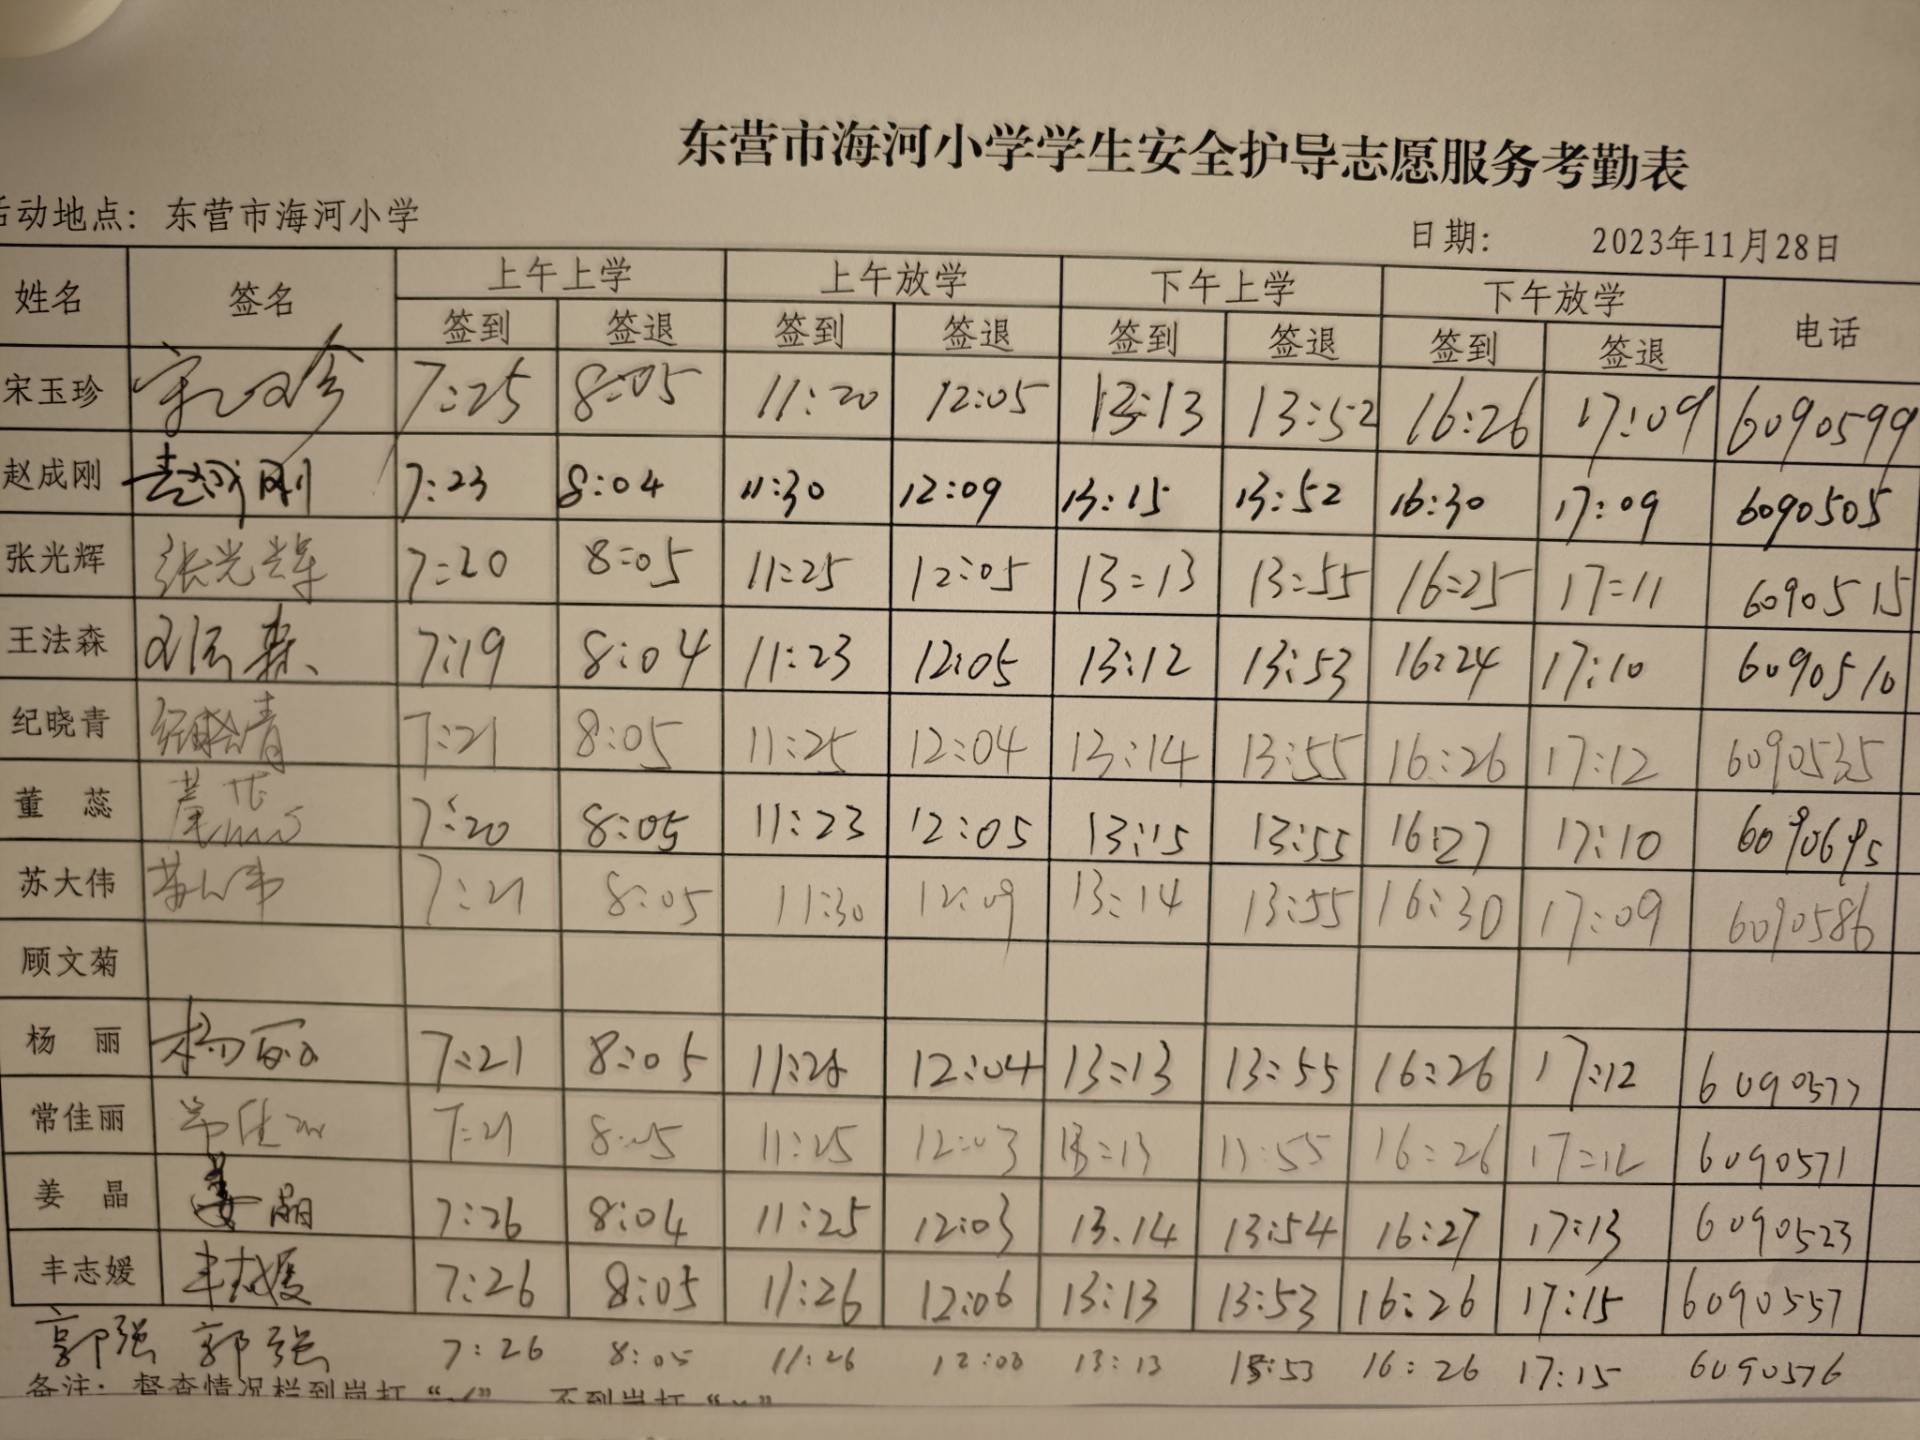 东营市海河小学学生安全护导志愿服务考勤表
活动地点: 东营市海河小学 日期: 2023年11月28日
姓名 签名 上午上学 上午放学 下午上学 下午放学 电话
签到 签退 签到 签退 签到 签退 签到 签退
宋玉珍 宋玉珍 7:25 8:05 11:20 12:05 13:13 13:52 16:26 17:09 6090599
赵成刚 赵成刚 7:23 8:04 11:30 12:09 13:15 13:52 16:30 17:09 6090505
张光辉 张光辉 7:20 8:05 11:25 12:05 13:13 13:55 16:25 17:11 6090515
王法森 王法森 7:19 8:04 11:23 12:05 13:12 13:53 16:24 17:10 6090510
纪晓青 纪晓青 7:21 8:05 11:25 12:04 13:14 13:55 16:26 17:12 6090535
董 蕊 董蕊 7:20 8:05 11:23 12:05 13:15 13:55 16:27 17:10 6090695
苏大伟 苏大伟 7:21 8:05 11:30 12:09 13:14 13:55 16:30 17:09 6090586
顾文菊
杨 丽 杨丽 7:21 8:05 12:04 13:13 13:55 16:26 17:12 6090577
常佳丽 常佳丽 7:21 8:05 11:25 12:03 13:13 13:55 16:26 17:12 6090571
姜 晶 姜晶 7:26 8:04 11:25 12:03 13.14 13:54 16:27 17:13 6090523
丰志媛 丰志媛 7:26 8:05 11:26 12:06 13:13 13:53 16:26 17:15 6090557
郭强 郭强 7:26 8:05 11:26 13:13 13:53 16:26 17:15 6090576
备注: 督查情况栏到岗打“√” 不到岗打“×”